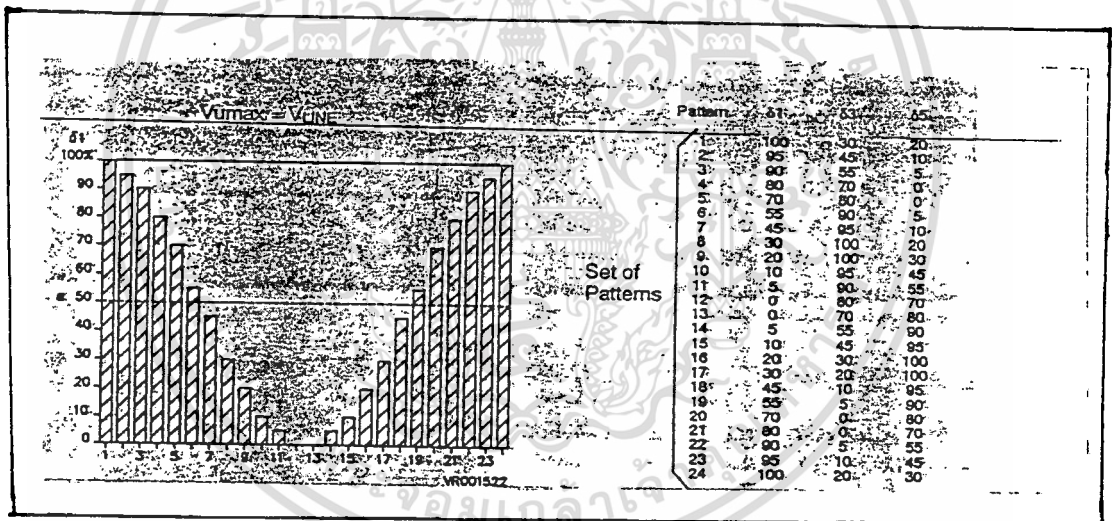 Vumax = VLINE
δ1
100%
90
80
70
60
50
40
30
20
10
0
1 3 5 7 9 11 13 15 17 19 21 23
VR001522
Set of
Patterns
Pattern δ1 δ3 δ5
1 100 30 20
2 95 45 10
3 90 55 5
4 80 70 0
5 70 80 0
6 55 90 5
7 45 95 10
8 30 100 20
9 20 100 30
10 10 95 45
11 5 90 55
12 0 80 70
13 0 70 80
14 5 55 90
15 10 45 95
16 20 30 100
17 30 20 100
18 45 10 95
19 55 5 90
20 70 0 80
21 80 0 70
22 90 5 55
23 95 10 45
24 100 20 30